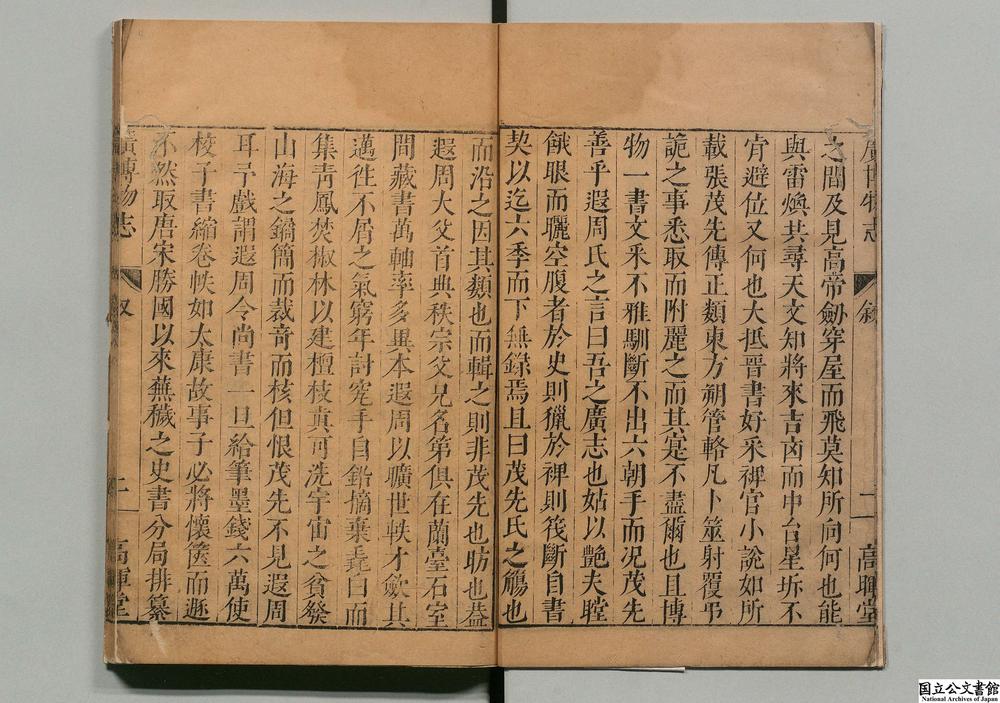 廣博物志 敘 二 高暉堂
之間及見高帝劒穿屋而飛莫知所向何也能
與雷煥共尋天文知將來吉凶而中台星坼不
肯避位又何也大抵晉書好采稗官小說如所
載張茂先傳正類東方朔管輅凡卜筮射覆弔
詭之事悉取而附麗之而其寔不盡爾也且博
物一書文采不雅馴斷不出六朝手而况茂先
善乎遐周氏之言曰吾之廣志也姑以艷夫瞠
餓眼而曬空腹者於史則獵於稗則筏斷自書
契以迄六季而下無錄焉且曰茂先氏之觴也
而沿之因其類也而輯之則非茂先也昉也葢
遐周大父首典秩宗父兄名第俱在蘭臺石室
間藏書萬軸率多異本遐周以曠世軼才歛其
邁往不屑之氣窮年討究手自鉛摘棄毳白而
集青鳳焚椒林以建檀枝真可洗宇宙之貧發
山海之鑰簡而裁奇而核但恨茂先不見遐周
耳予戲謂遐周令尚書一旦給筆墨錢六萬使
校子書縮卷帙如太康故事子必將懷篋而遯
不然取唐宋勝國以來蕪穢之史書分局排纂
廣博物志 敘 二 高暉堂
国立公文書館
National Archives of Japan